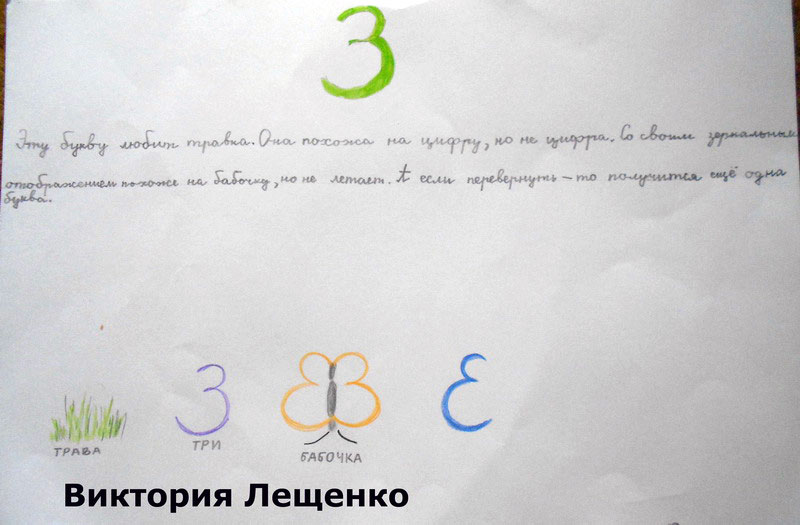 З
Эту букву любит травка. Она похожа на цифру, но не цифра. Со своим зеркальным
отображением похожа на бабочку, но не летает. А если перевернуть – то получится ещё одна
буква.
З Ɛ
ТРАВА ТРИ БАБОЧКА
Виктория Лещенко